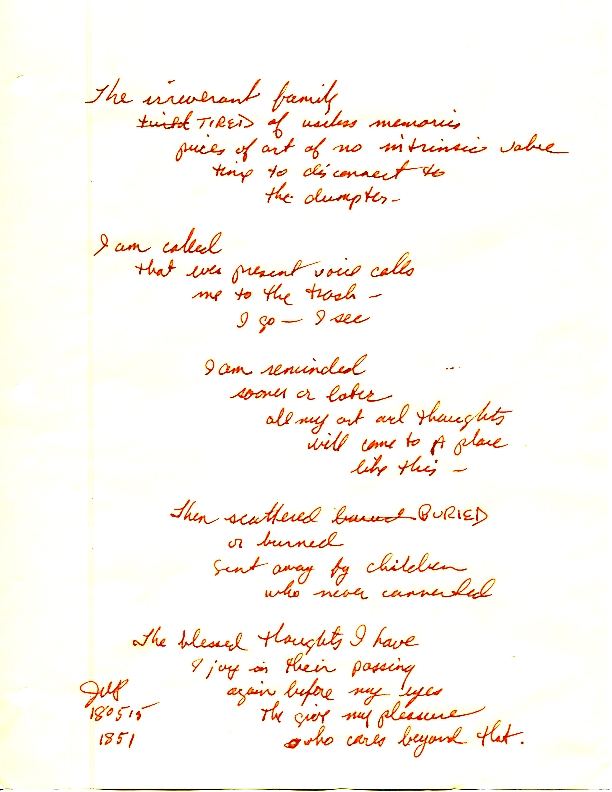 The irreverant family
tired TIRED of useless memories
pieces of art of no intrinsic value
time to disconnect to
the dumpter-
I am called
that ever present voice calls
me to the trash -
I go - I see
I am reminded
sooner or later
all my art and thoughts
will come to A place
like this -
Then scattered buried BURIED
or burned
sent away by children
who never connected
The blessed thoughts I have
I joy in their passing
again before my eyes
The give my pleasure
who cares beyond that.
JWP
180515
1851